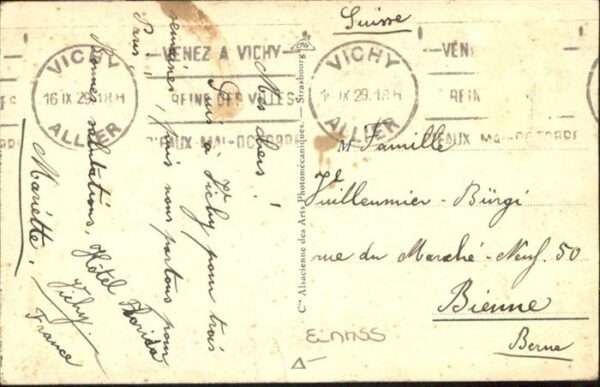 Suisse
VICHY
16 IX 29. 18H
ALLIER
VENEZ A VICHY
REINE DES VILLES
D'EAUX-MAI-OCTOBRE
VICHY
16 IX 29. 18H
ALLIER
VENE
REIN
EAUX MAI-OCTOBRE
Mes chers!
Suis à Vichy pour trois
semaines, puis nous partons pour
Paris,
Bonnes salutations,
Mariette.
Hôtel Florida
Vichy
France
Cie Alsacienne des Arts Photomécaniques. — Strasbourg
Famille
Vuilleumier-Bürgi
rue du Marché-Neuf. 50
Bienne
Berne